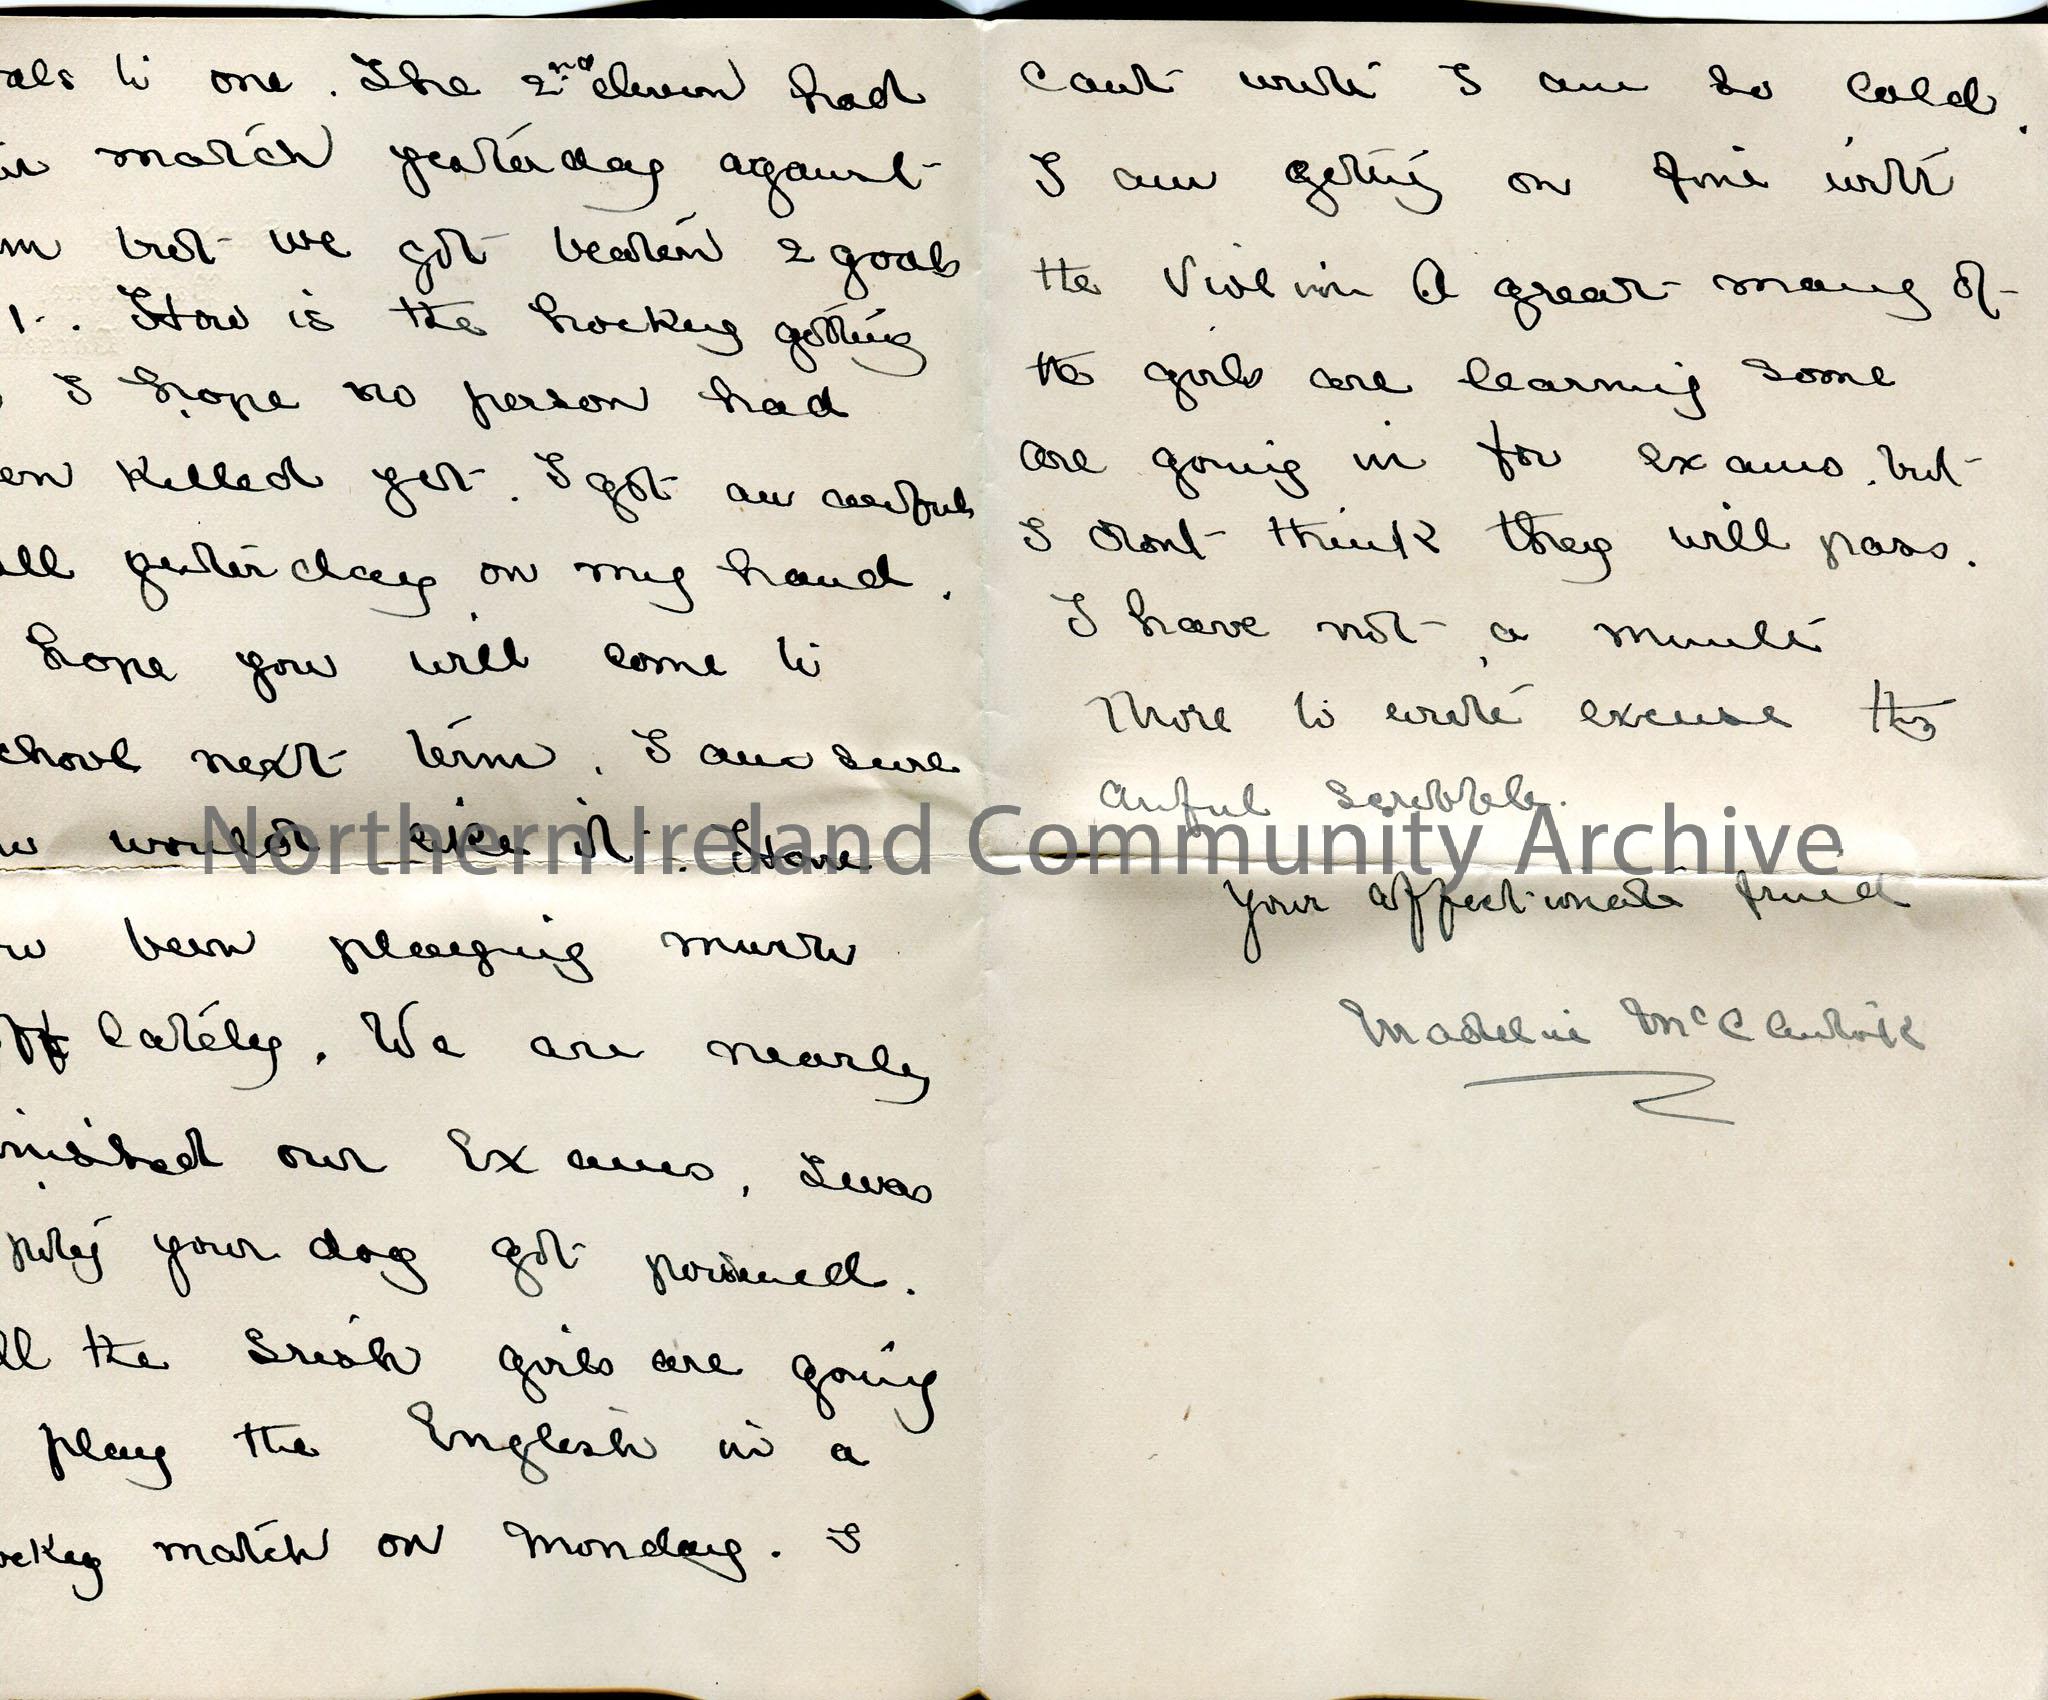 als to one. The 2nd eleven had
ir match yesterday against
m but we got beaten 2 goals
1. How is the hockey getting
I hope no person had
en killed yet. I got an awful
ll yesterday on my hand.
hope you will come to
chool next term. I am sure
u would like it. Have
u been playing much
lately. We are nearly
nished our Exams, I was
pity your dog got poisined.
ll the Irish girls are going
play the English in a
ockey match on Monday. I
cant write I am so cold.
I am getting on fine with
the Violin A great many of
the girls are learning some
are going in for exams but
I dont think they will pass.
I have not a minute
more to write excuse this
awful scribble.
Your affectionate friend
Madeline McClintock
Northern Ireland Community Archive